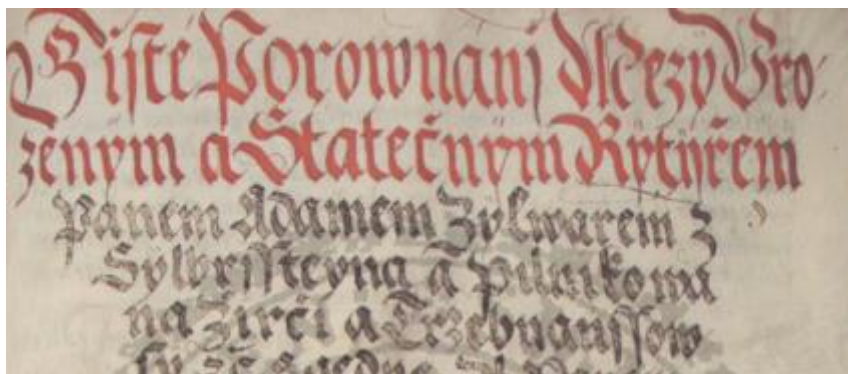 Giste Porownanj Mezy Vro-
zenym a Statečnym Rytijřem
Panem Adamem Zylwarem z
Sylbrssteyna a Pilnikowa
na Žirči a Trzebnaussow